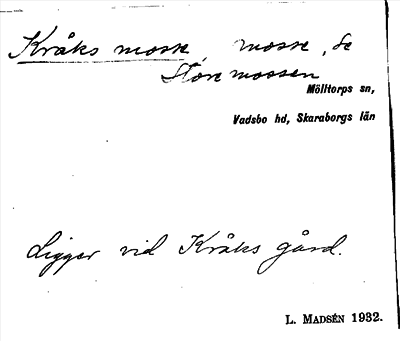 Kråks mosse, mosse, se
Store mossen
Mölltorps sn,
Vadsbo hd, Skaraborgs län
Ligger vid Kråks gård.
L. Madsén 1932.